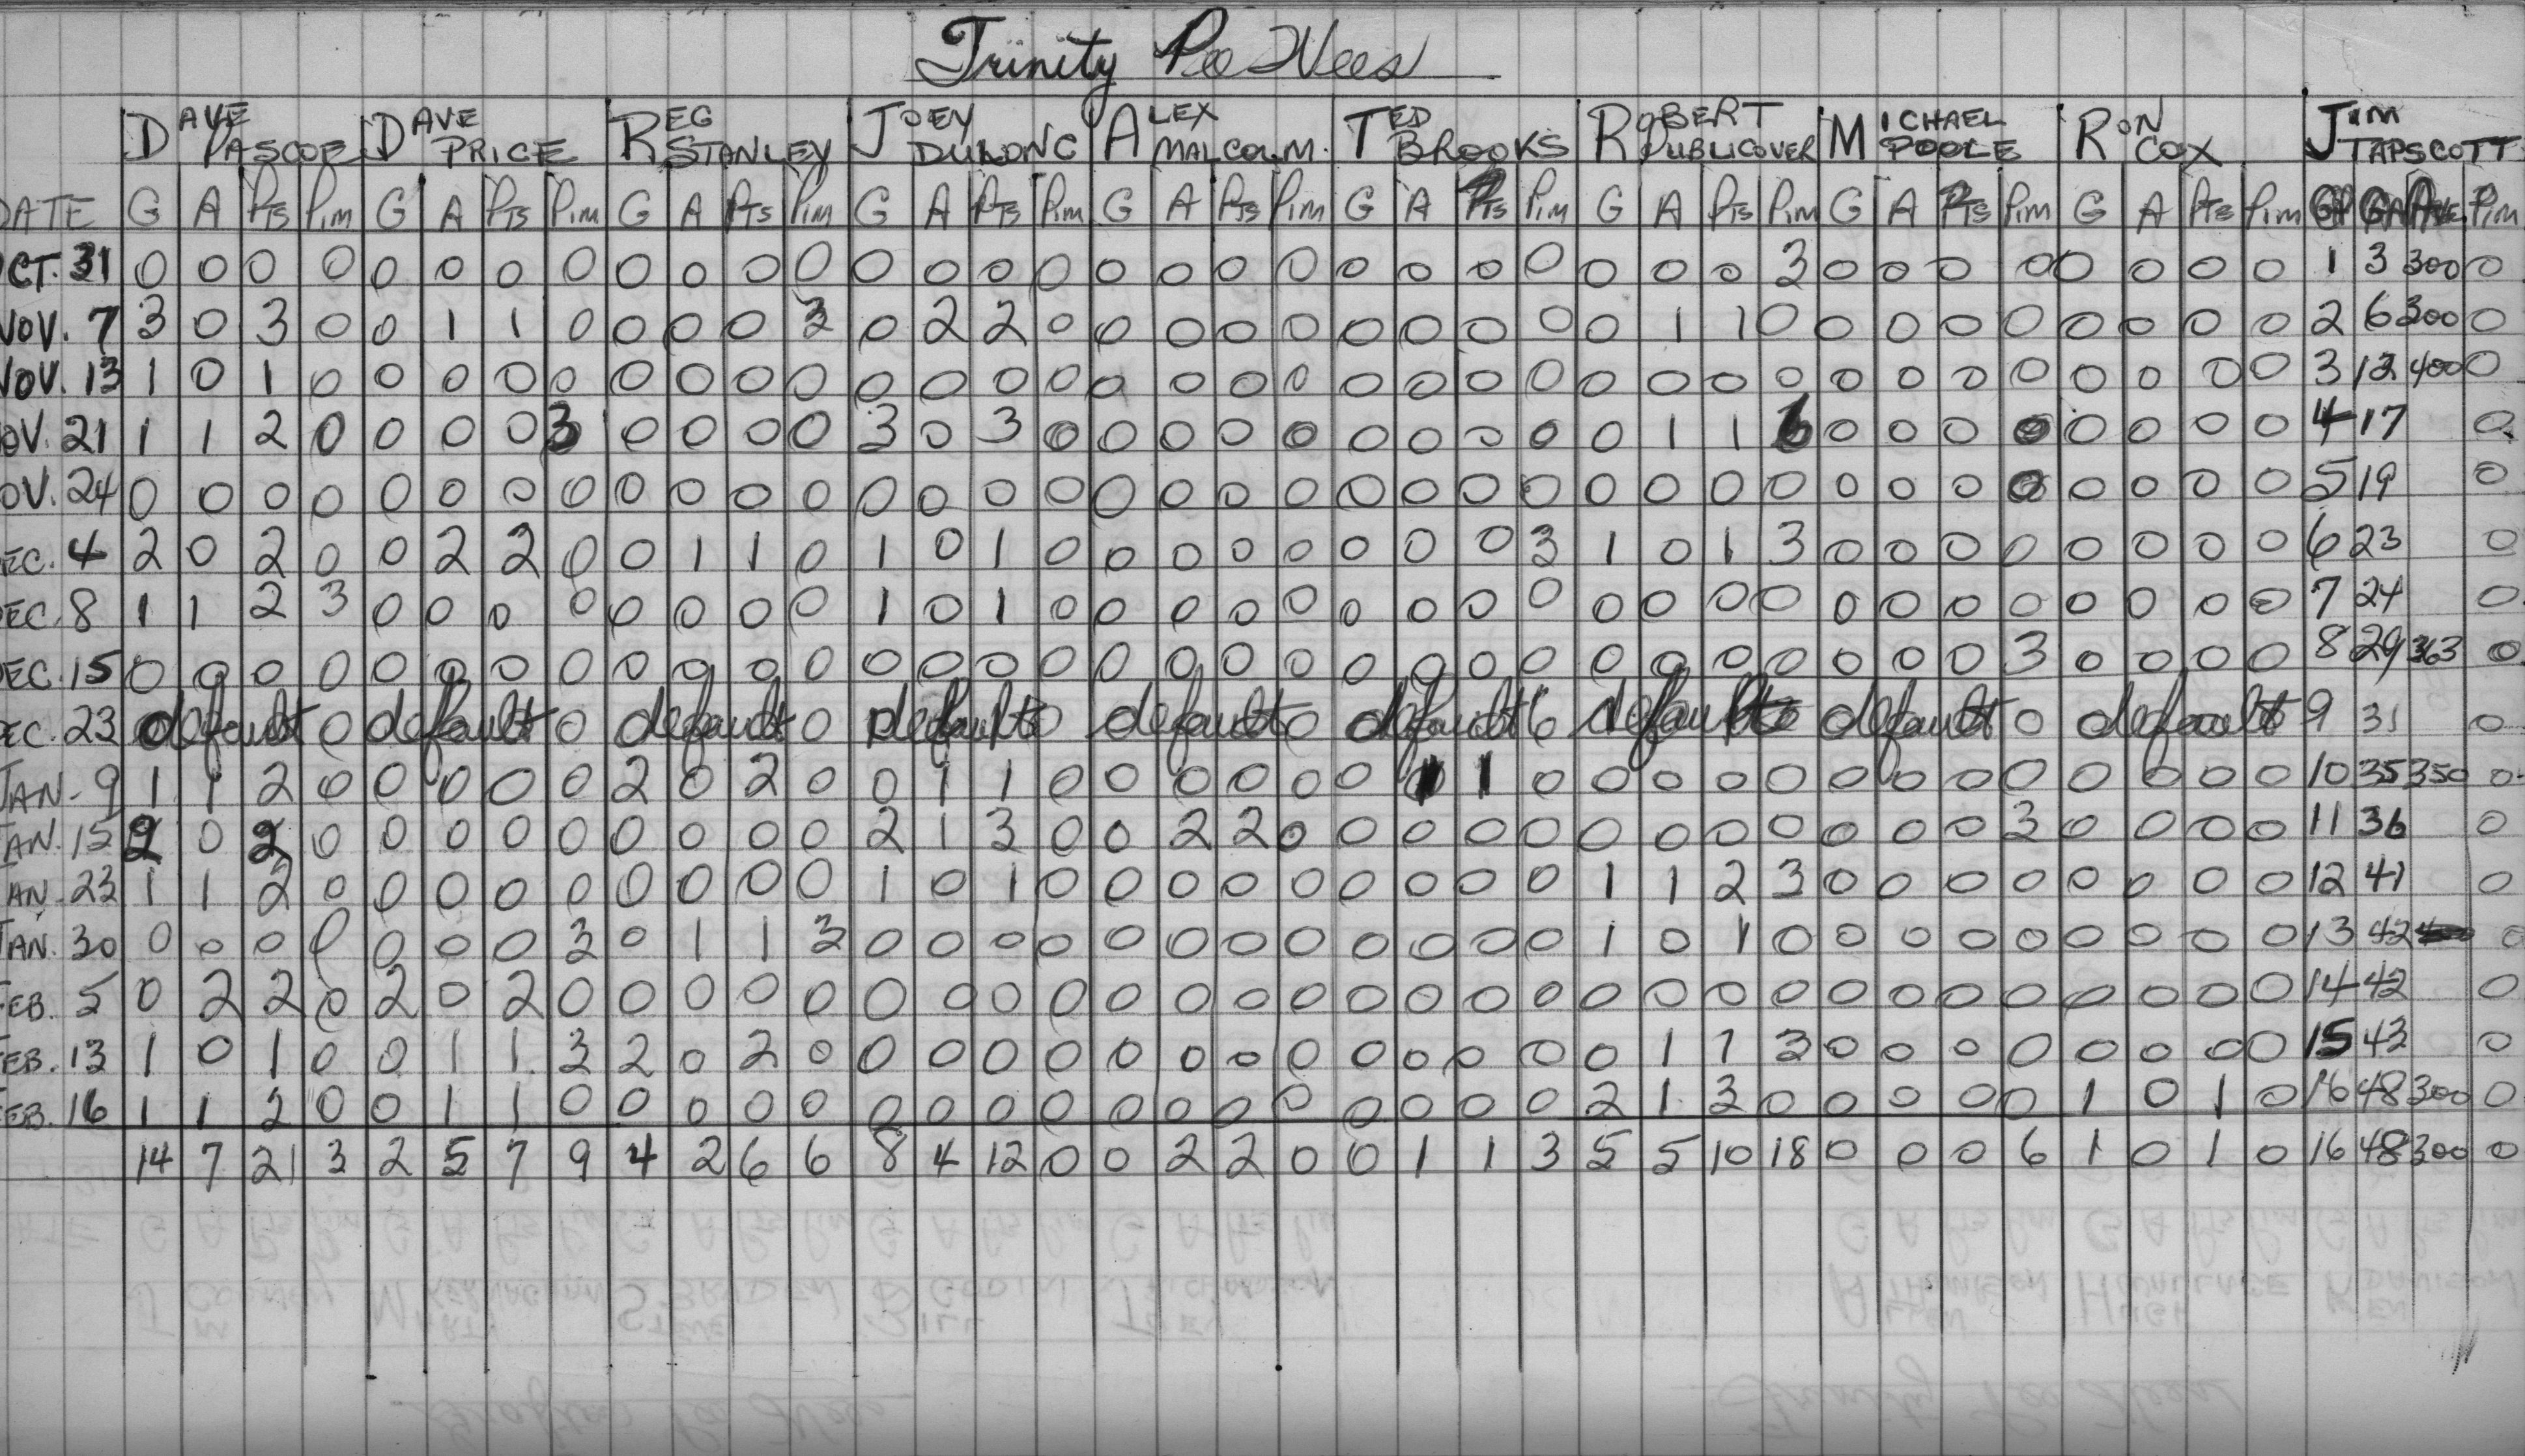 Trinity Pee Wees
DAVE PASCOE DAVE PRICE REG STANLEY JOEY DULONG ALEX MALCOLM. TED BROOKS ROBERT PUBLICOVER MICHAEL POOLE RON COX JIM TAPSCOTT
DATE G A Pts Pim G A Pts Pim G A Pts Pim G A Pts Pim G A Pts Pim G A Pts Pim G A Pts Pim G A Pts Pim G A Pts Pim GP GA Ave. Pim
OCT. 31 0 0 0 0 0 0 0 0 0 0 0 0 0 0 0 0 0 0 0 0 0 0 0 0 0 0 0 3 0 0 0 0 0 0 0 0 1 3 300 0
NOV. 7 3 0 3 0 0 1 1 0 0 0 0 3 0 2 2 0 0 0 0 0 0 0 0 0 0 1 1 0 0 0 0 0 0 0 0 0 2 6 300 0
NOV. 13 1 0 1 0 0 0 0 0 0 0 0 0 0 0 0 0 0 0 0 0 0 0 0 0 0 0 0 0 0 0 0 0 0 0 0 0 3 12 400 0
NOV. 21 1 1 2 0 0 0 0 3 0 0 0 0 3 0 3 0 0 0 0 0 0 0 0 0 0 1 1 6 0 0 0 0 0 0 0 0 4 17 0
NOV. 24 0 0 0 0 0 0 0 0 0 0 0 0 0 0 0 0 0 0 0 0 0 0 0 0 0 0 0 0 0 0 0 0 0 0 0 0 5 19 0
DEC. 4 2 0 2 0 0 2 2 0 0 1 1 0 1 0 1 0 0 0 0 0 0 0 0 3 1 0 1 3 0 0 0 0 0 0 0 0 6 23 0
DEC. 8 1 1 2 3 0 0 0 0 0 0 0 0 1 0 1 0 0 0 0 0 0 0 0 0 0 0 0 0 0 0 0 0 0 0 0 0 7 24 0
DEC. 15 0 0 0 0 0 0 0 0 0 0 0 0 0 0 0 0 0 0 0 0 0 0 0 0 0 0 0 0 0 0 0 3 0 0 0 0 8 29 363 0
DEC. 23 default 0 default 0 default 0 default 0 default 0 default 0 default 0 default 0 default 9 31 0
JAN. 9 1 1 2 0 0 0 0 0 2 0 2 0 0 1 1 0 0 0 0 0 0 1 1 0 0 0 0 0 0 0 0 0 0 0 0 0 10 35 350 0
JAN. 15 2 0 2 0 0 0 0 0 0 0 0 0 2 1 3 0 0 2 2 0 0 0 0 0 0 0 0 0 0 0 0 3 0 0 0 0 11 36 0
JAN. 23 1 1 2 0 0 0 0 0 0 0 0 0 1 0 1 0 0 0 0 0 0 0 0 0 1 1 2 3 0 0 0 0 0 0 0 0 12 41 0
JAN. 30 0 0 0 0 0 0 0 3 0 1 1 3 0 0 0 0 0 0 0 0 0 0 0 0 1 0 1 0 0 0 0 0 0 0 0 0 13 42 0
FEB. 5 0 2 2 0 2 0 2 0 0 0 0 0 0 0 0 0 0 0 0 0 0 0 0 0 0 0 0 0 0 0 0 0 0 0 0 0 14 42 0
FEB. 13 1 0 1 0 0 1 1 3 2 0 2 0 0 0 0 0 0 0 0 0 0 0 0 0 0 1 1 3 0 0 0 0 0 0 0 0 15 43 0
FEB. 16 1 1 2 0 0 1 1 0 0 0 0 0 0 0 0 0 0 0 0 0 0 0 0 0 2 1 3 0 0 0 0 0 1 0 1 0 16 48 300 0
14 7 21 3 2 5 7 9 4 2 6 6 8 4 12 0 0 2 2 0 0 1 1 3 5 5 10 18 0 0 0 6 1 0 1 0 16 48 300 0